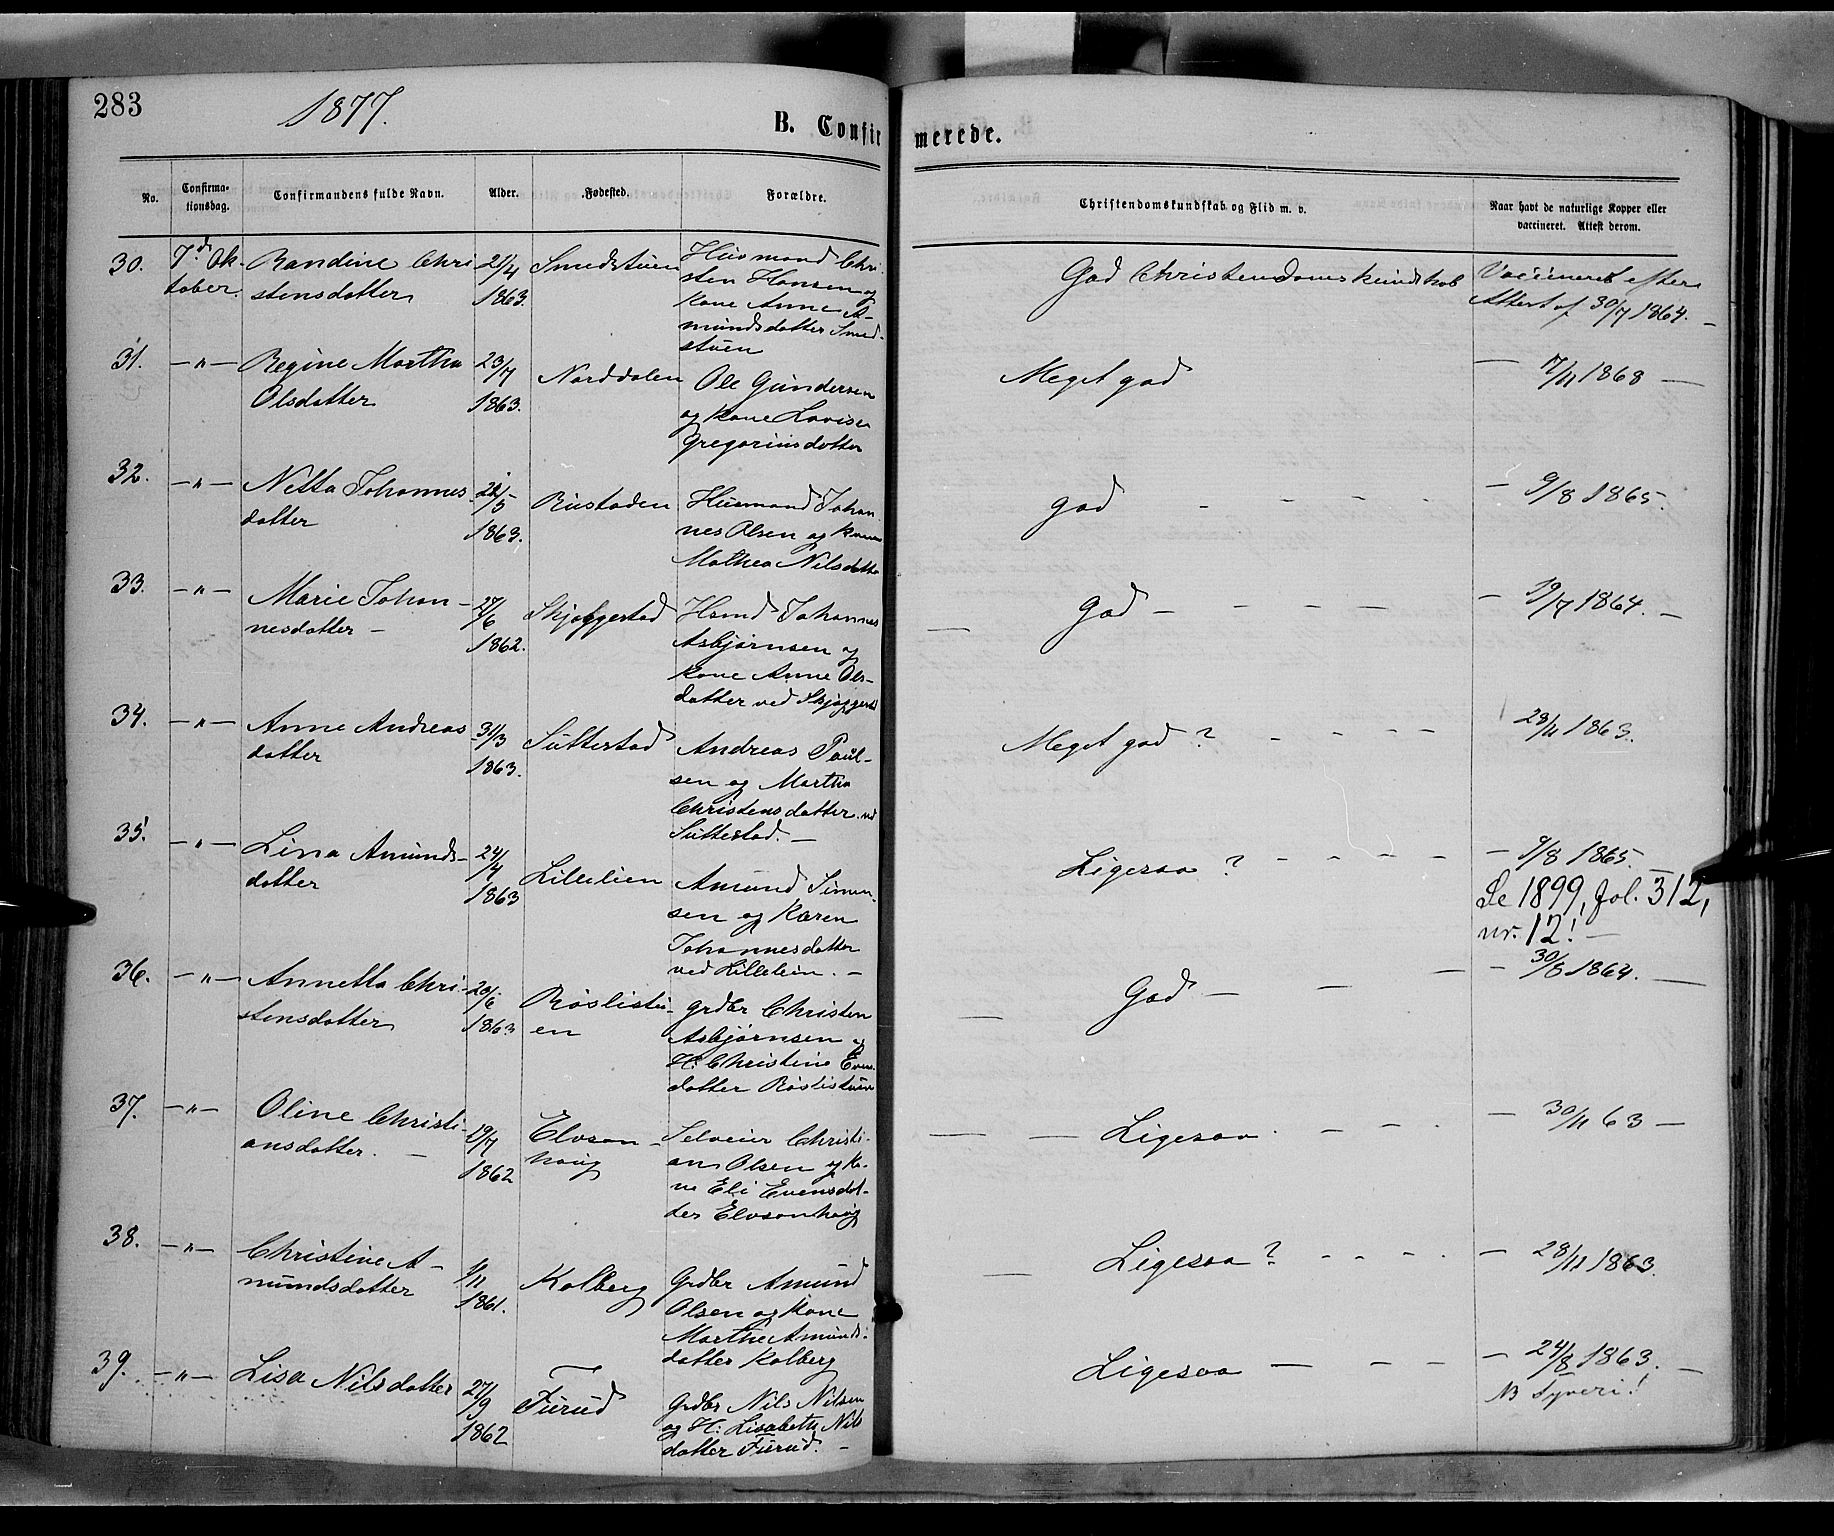 283
1877.
B. Confirmerede.
No.
Confirma-
tionsdag.
Confirmandens fulde Navn.
Alder.
Fødested.
Forældre.
Christendomskundskab og Flid m. v.
Naar havt de naturlige Kopper eller
vaccineret. Attest derom.
30.
7de Ok-
tober.
Randine Chri
stensdatter
21/4
1863.
Smedstuen
Husmand Chri
sten Hansen og
Kone Anne A-
mundsdatter Smed-
stuen
God Christendomskundskab
Vaccineret efter
Attest af 30/7 1864. -
31.
- " -
Regine Martha
Olsdatter
23/7
1863.
Norddalen
Ole Gundersen
og Kone Lovise
Gregoriusdatter
Meget god
- 7/11 1868 -
32.
- " -
Netta Johannes
datter
1863.
Rustaden
Husmand Johan
nes Olsen og Kone
Mathea Nilsdatter
god - - - -
- 9/8 1865.
33.
- " -
Marie Johan-
nesdatter -
27/6
1862.
Skjøggestad
Hsmd Johannes
Asbjørnsen og
Kone Anne Ols-
datter ved Skjøggestad
- God - - - -
- 19/7 1864. -
34.
- " -
Anne Andreas
datter
31/3
1863.
Suttestad
Andreas Paul-
sen og Martha
Christensdatter ved
Suttestad. -
Meget god ? - - - -
28/11 1863.
35.
- " -
Lina Amunds-
datter
24/4
1863
Lillelien
Amund Simen-
sen og Karen
Johannesdatter
ved Lillelien. -
Ligesaa ? - - - - -
- 9/8 1865. -
Se 1899, fol. 312,
nr. 12! -
36.
- " -
Annetta Chri-
stensdatter
1863
Røslistu-
en
grdbr Christen
Asbjørnsen og
H: Christine Evens
datter Røslistuen
- God - -
- - 30/8 1864. -
37.
- " -
Oline Christi-
ansdatter. -
29/7
1862
Elvson-
houg
Selveier Christi-
an Olsen og Ko-
ne Eli Evensdat-
ter Elvsonhoug
- - Ligesaa. - - -
- 30/11 63 -
38.
- " -
Christine A-
mundsdatter
1/11
1861.
Kolberg
Grdbr Amund
Olsen og Kone
Marthe Amunds-
datter Kolberg
- Ligesaa ? - - - -
- 28/11 1863.
39.
- " -
Lisa Nilsdatter
27/9
1862
Furud
Grdbr Nils Nilsen
og H: Lisabeth Nils
datter Furud. -
Ligesaa - - - -
- 24/8 1863. -
NB Tyveri!